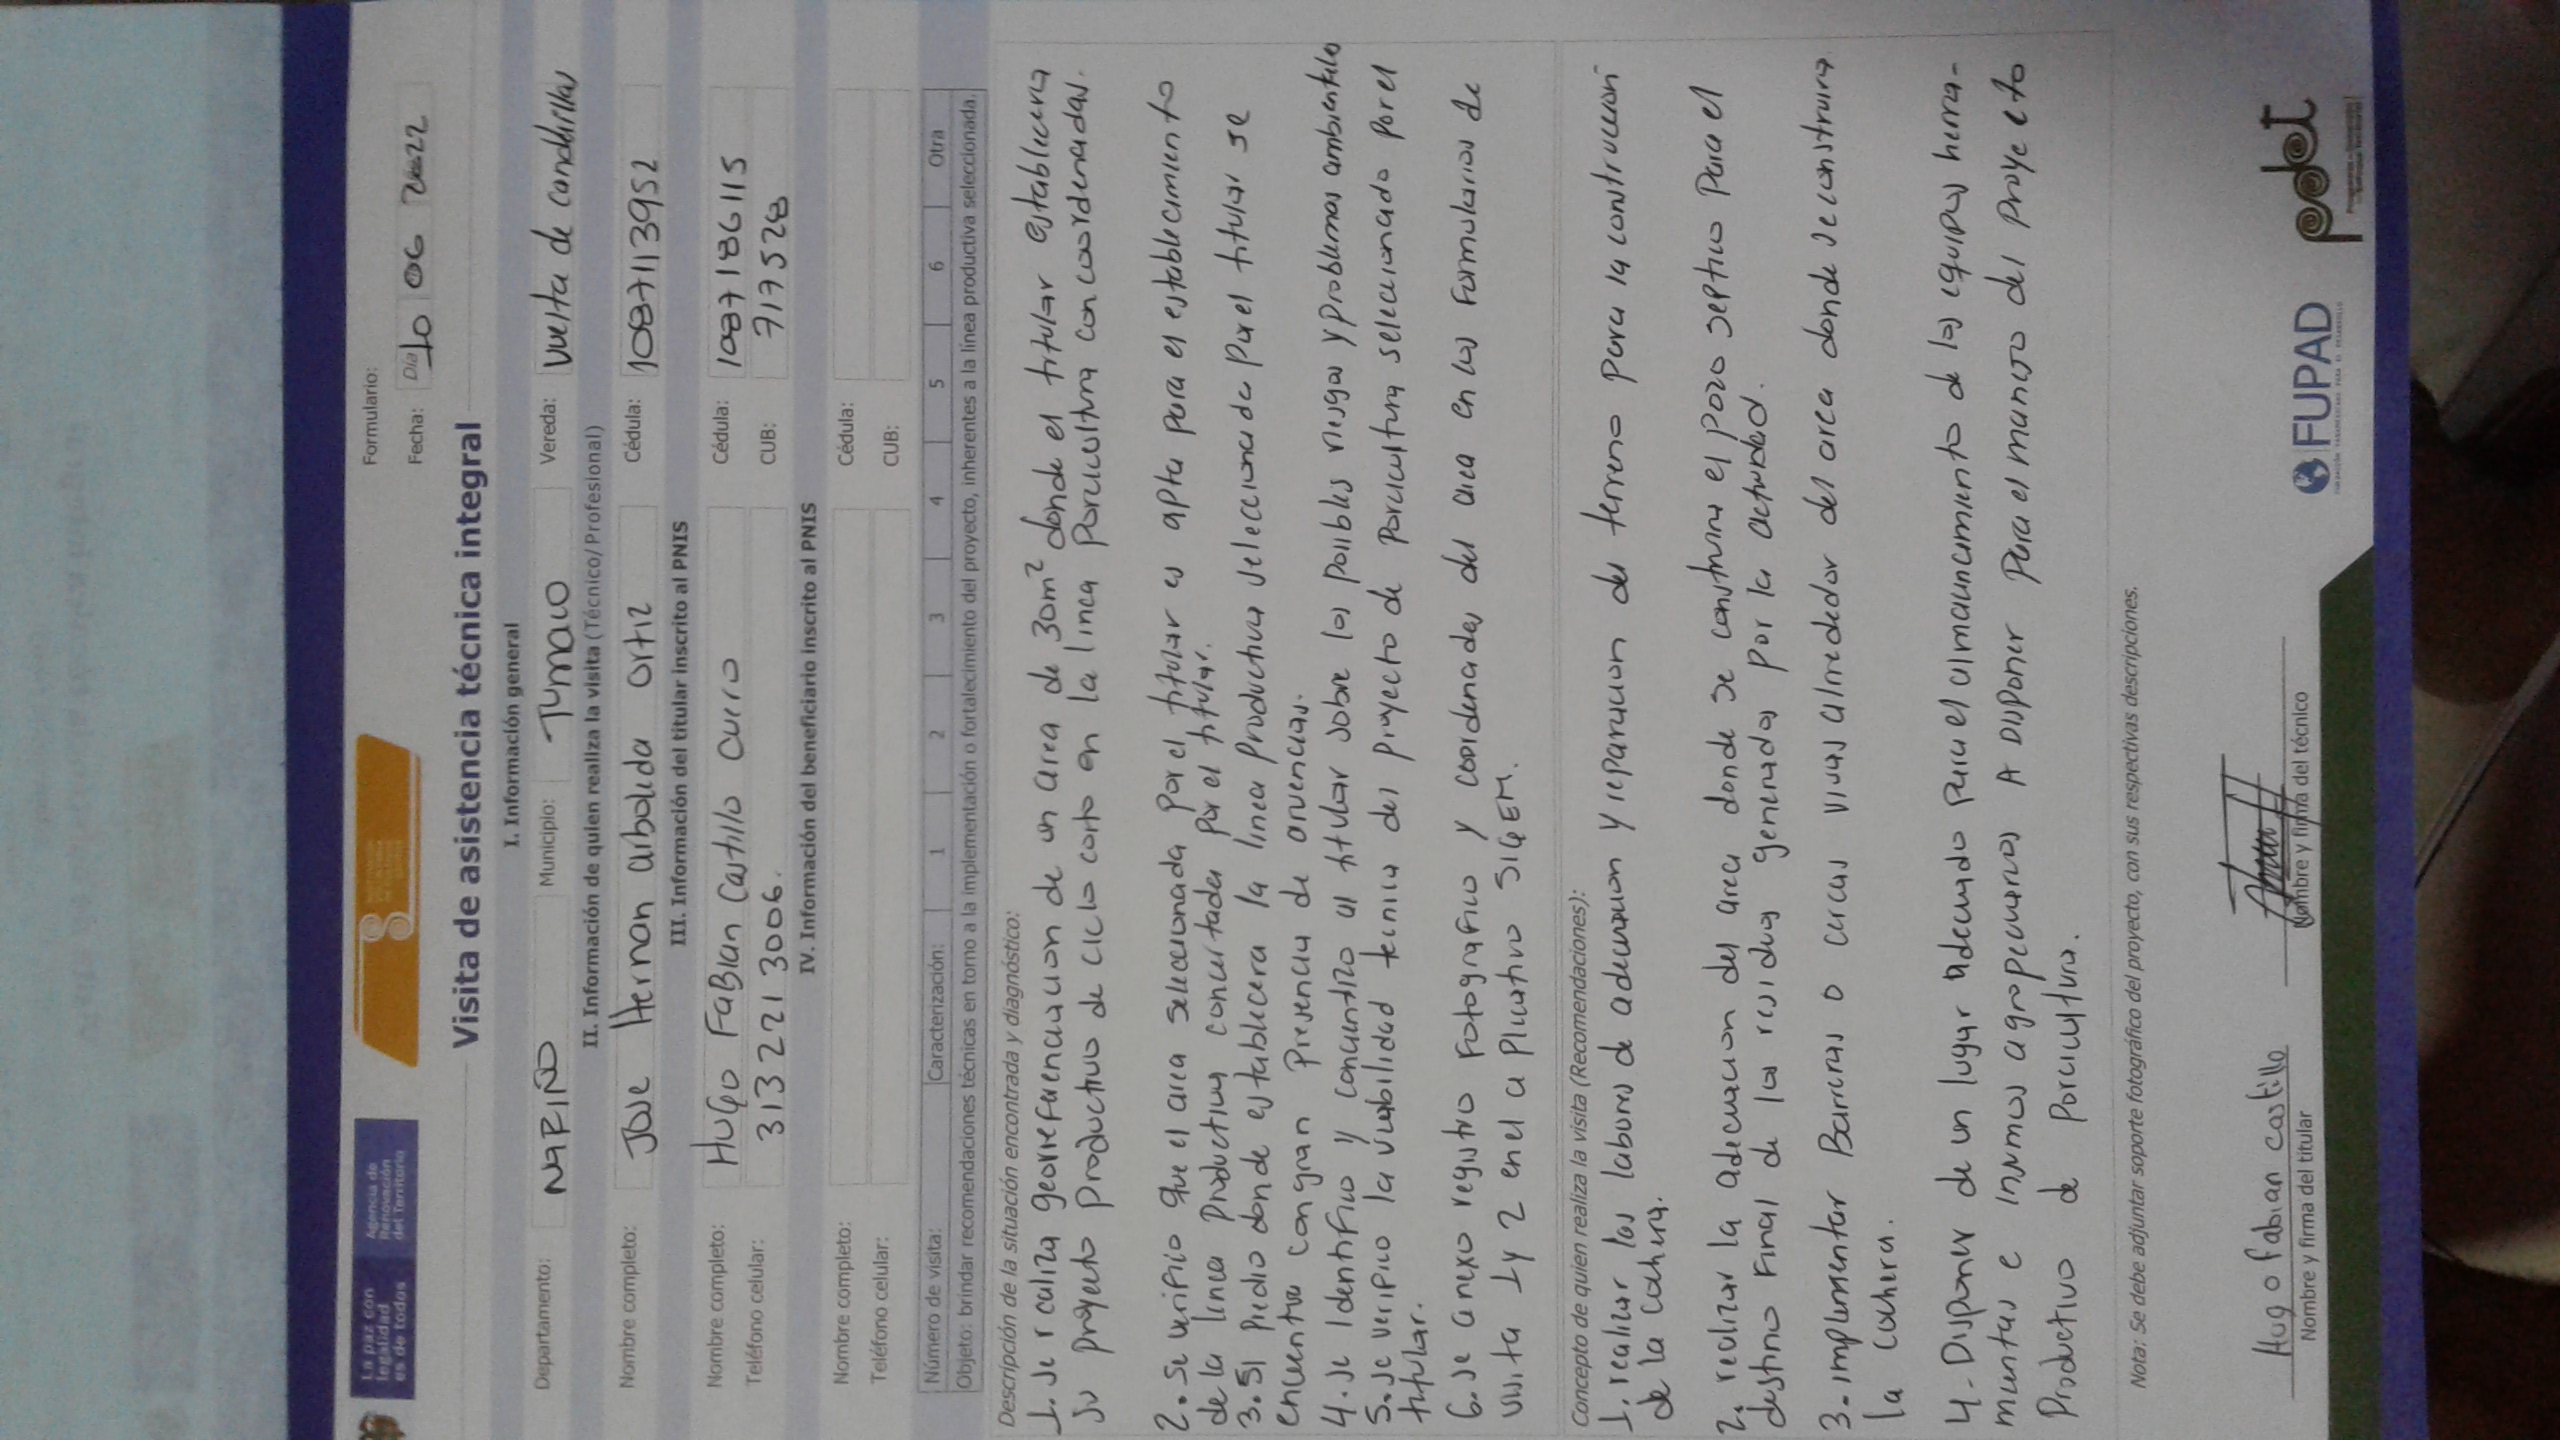 La paz con
legalidad
es de todos
Agencia de
Renovación
del Territorio
Formulario:
Fecha: Día 10 06 2022
Visita de asistencia técnica integral
I. Información general
Departamento: NARIÑO Municipio: Tumaco Vereda: Vuelta de candelillas
II. Información de quien realiza la visita (Técnico/Profesional)
Nombre completo: Jose Hernan arboleda ortiz Cédula: 1087113952
III. Información del titular inscrito al PNIS
Nombre completo: Hugo Fabian Castillo Cuero Cédula: 1087186115
Teléfono celular: 313 221 3006. CUB: 717528
IV. Información del beneficiario inscrito al PNIS
Nombre completo: Cédula:
Teléfono celular: CUB:
Número de visita: Caracterización: 1 2 3 4 5 6 Otra
Objeto: brindar recomendaciones técnicas en torno a la implementación o fortalecimiento del proyecto, inherentes a la línea productiva seleccionada.
Descripción de la situación encontrada y diagnóstico:
1. Se realiza georreferenciacion de un area de 30m² donde el titular establecera
su proyecto productivo de ciclo corto en la linea Porcicultura con coordenadas.
2. Se verifico que el area seleccionada por el titular es apta para el establecimiento
de la linea productiva concertada por el titular.
3. El predio donde establecera la linea productiva seleccionada por el titular se
encuentra con gran presencia de arvencias.
4. Se Identifico y concientizo al titular sobre los posibles riesgos y problemas ambientales
5. Se verifico la viabilidad tecnica del proyecto de Porcicultura seleccionado por el
titular.
6. Se anexo registro fotografico y coordenadas del area en los formularios de
visita 1 y 2 en el aplicativo SIGEM.
Concepto de quien realiza la visita (Recomendaciones):
1. realizar las labores de adecuacion y reparacion del terreno para la construccion
de la cochera.
2. realizar la adecuacion del area donde se construira el pozo septico para el
destino final de los residuos generados por la actividad.
3. implementar Barreras o cercas vivas alrededor del area donde se construira
la cochera.
4. Disponer de un lugar adecuado para el almacenamiento de los equipos herra-
mientas e insumos agropecuarios A disponer para el manejo del proyecto
Productivo de Porcicultura.
Nota: Se debe adjuntar soporte fotográfico del proyecto, con sus respectivas descripciones.
Hugo fabian castillo
Nombre y firma del titular
Nombre y firma del técnico
FUPAD
pdet